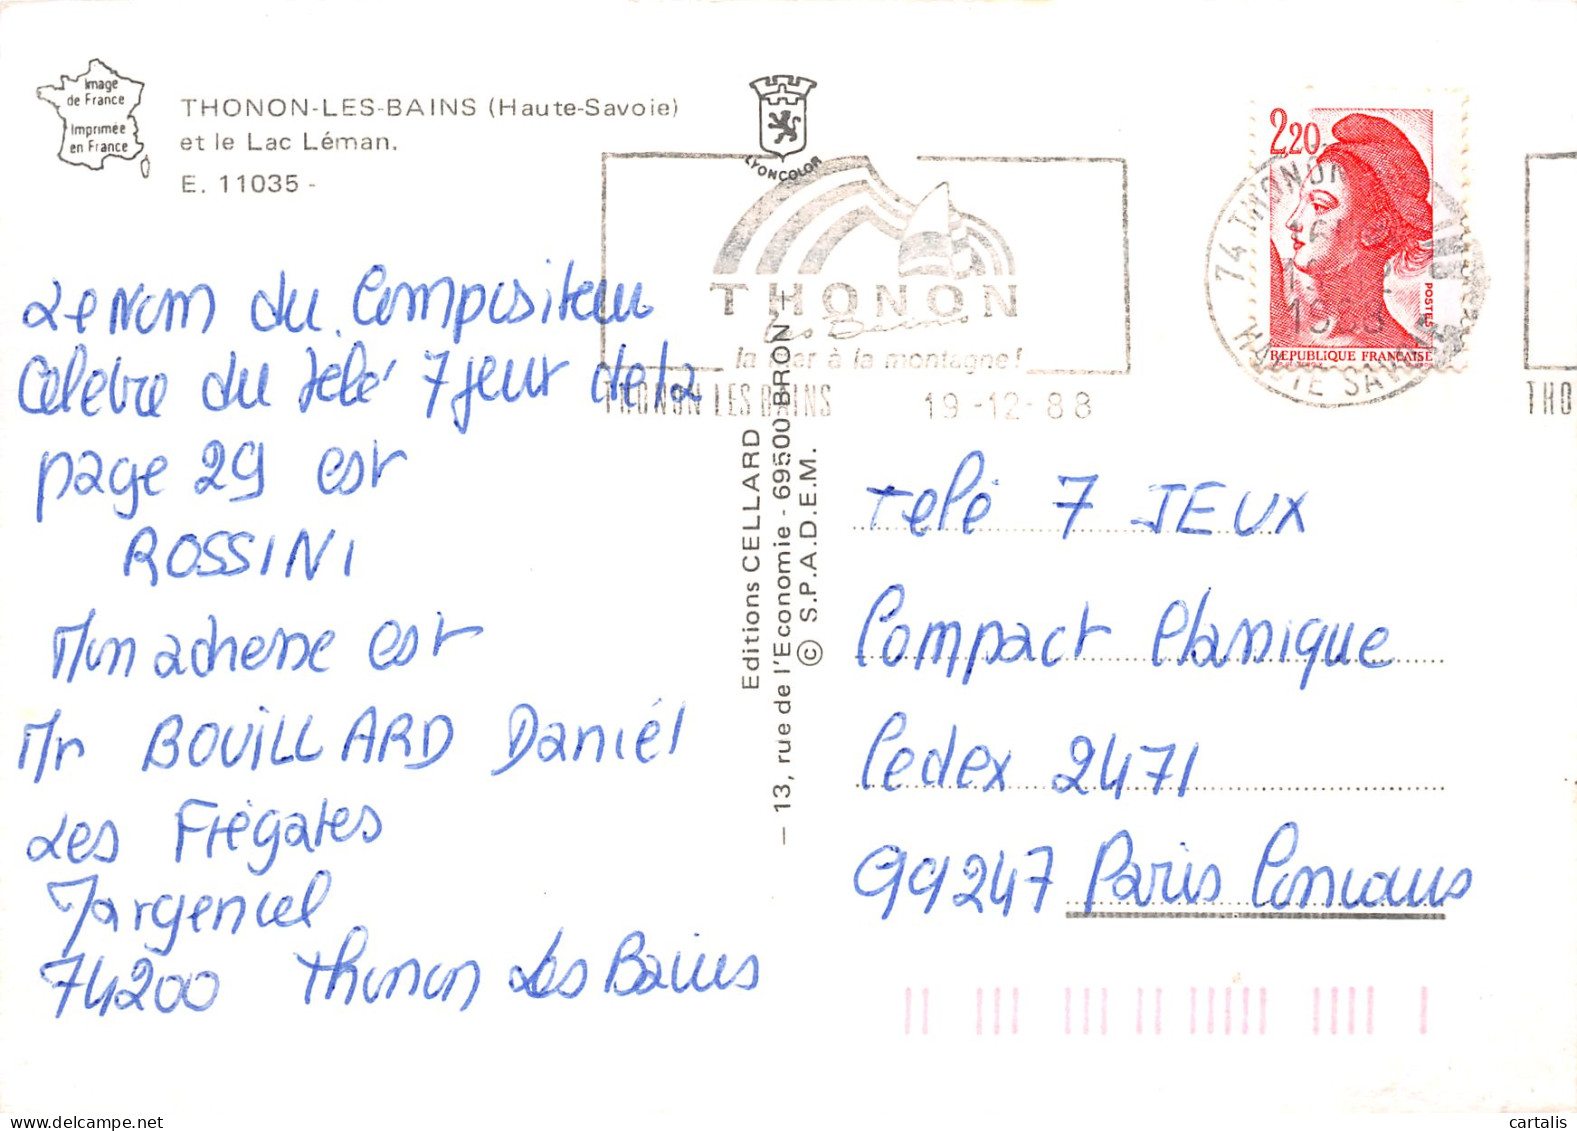 Image
de France
Imprimée
en France
THONON-LES-BAINS (Haute-Savoie)
et le Lac Léman.
E. 11035 -
LYONCOLOR
THONON
les Bains
la mer à la montagne!
THONON LES BAINS 19-12-88
2,20
POSTES
REPUBLIQUE FRANÇAISE
74 THONON
HAUTE SAVOIE
1988
THO
Le Nom du Compositeur
Celebre du Télé 7 jeux de la
page 29 est
ROSSINI
Mon adresse est
Mr BOUILLARD Daniél
Les Frégates
Margencel
74200 Thonon Les Bains
Editions CELLARD
— 13, rue de l'Economie - 69500 BRON +
© S.P.A.D.E.M.
Telé 7 JEUX
Compact Classique
Cedex 2471
99247 Paris Concours
cartalis